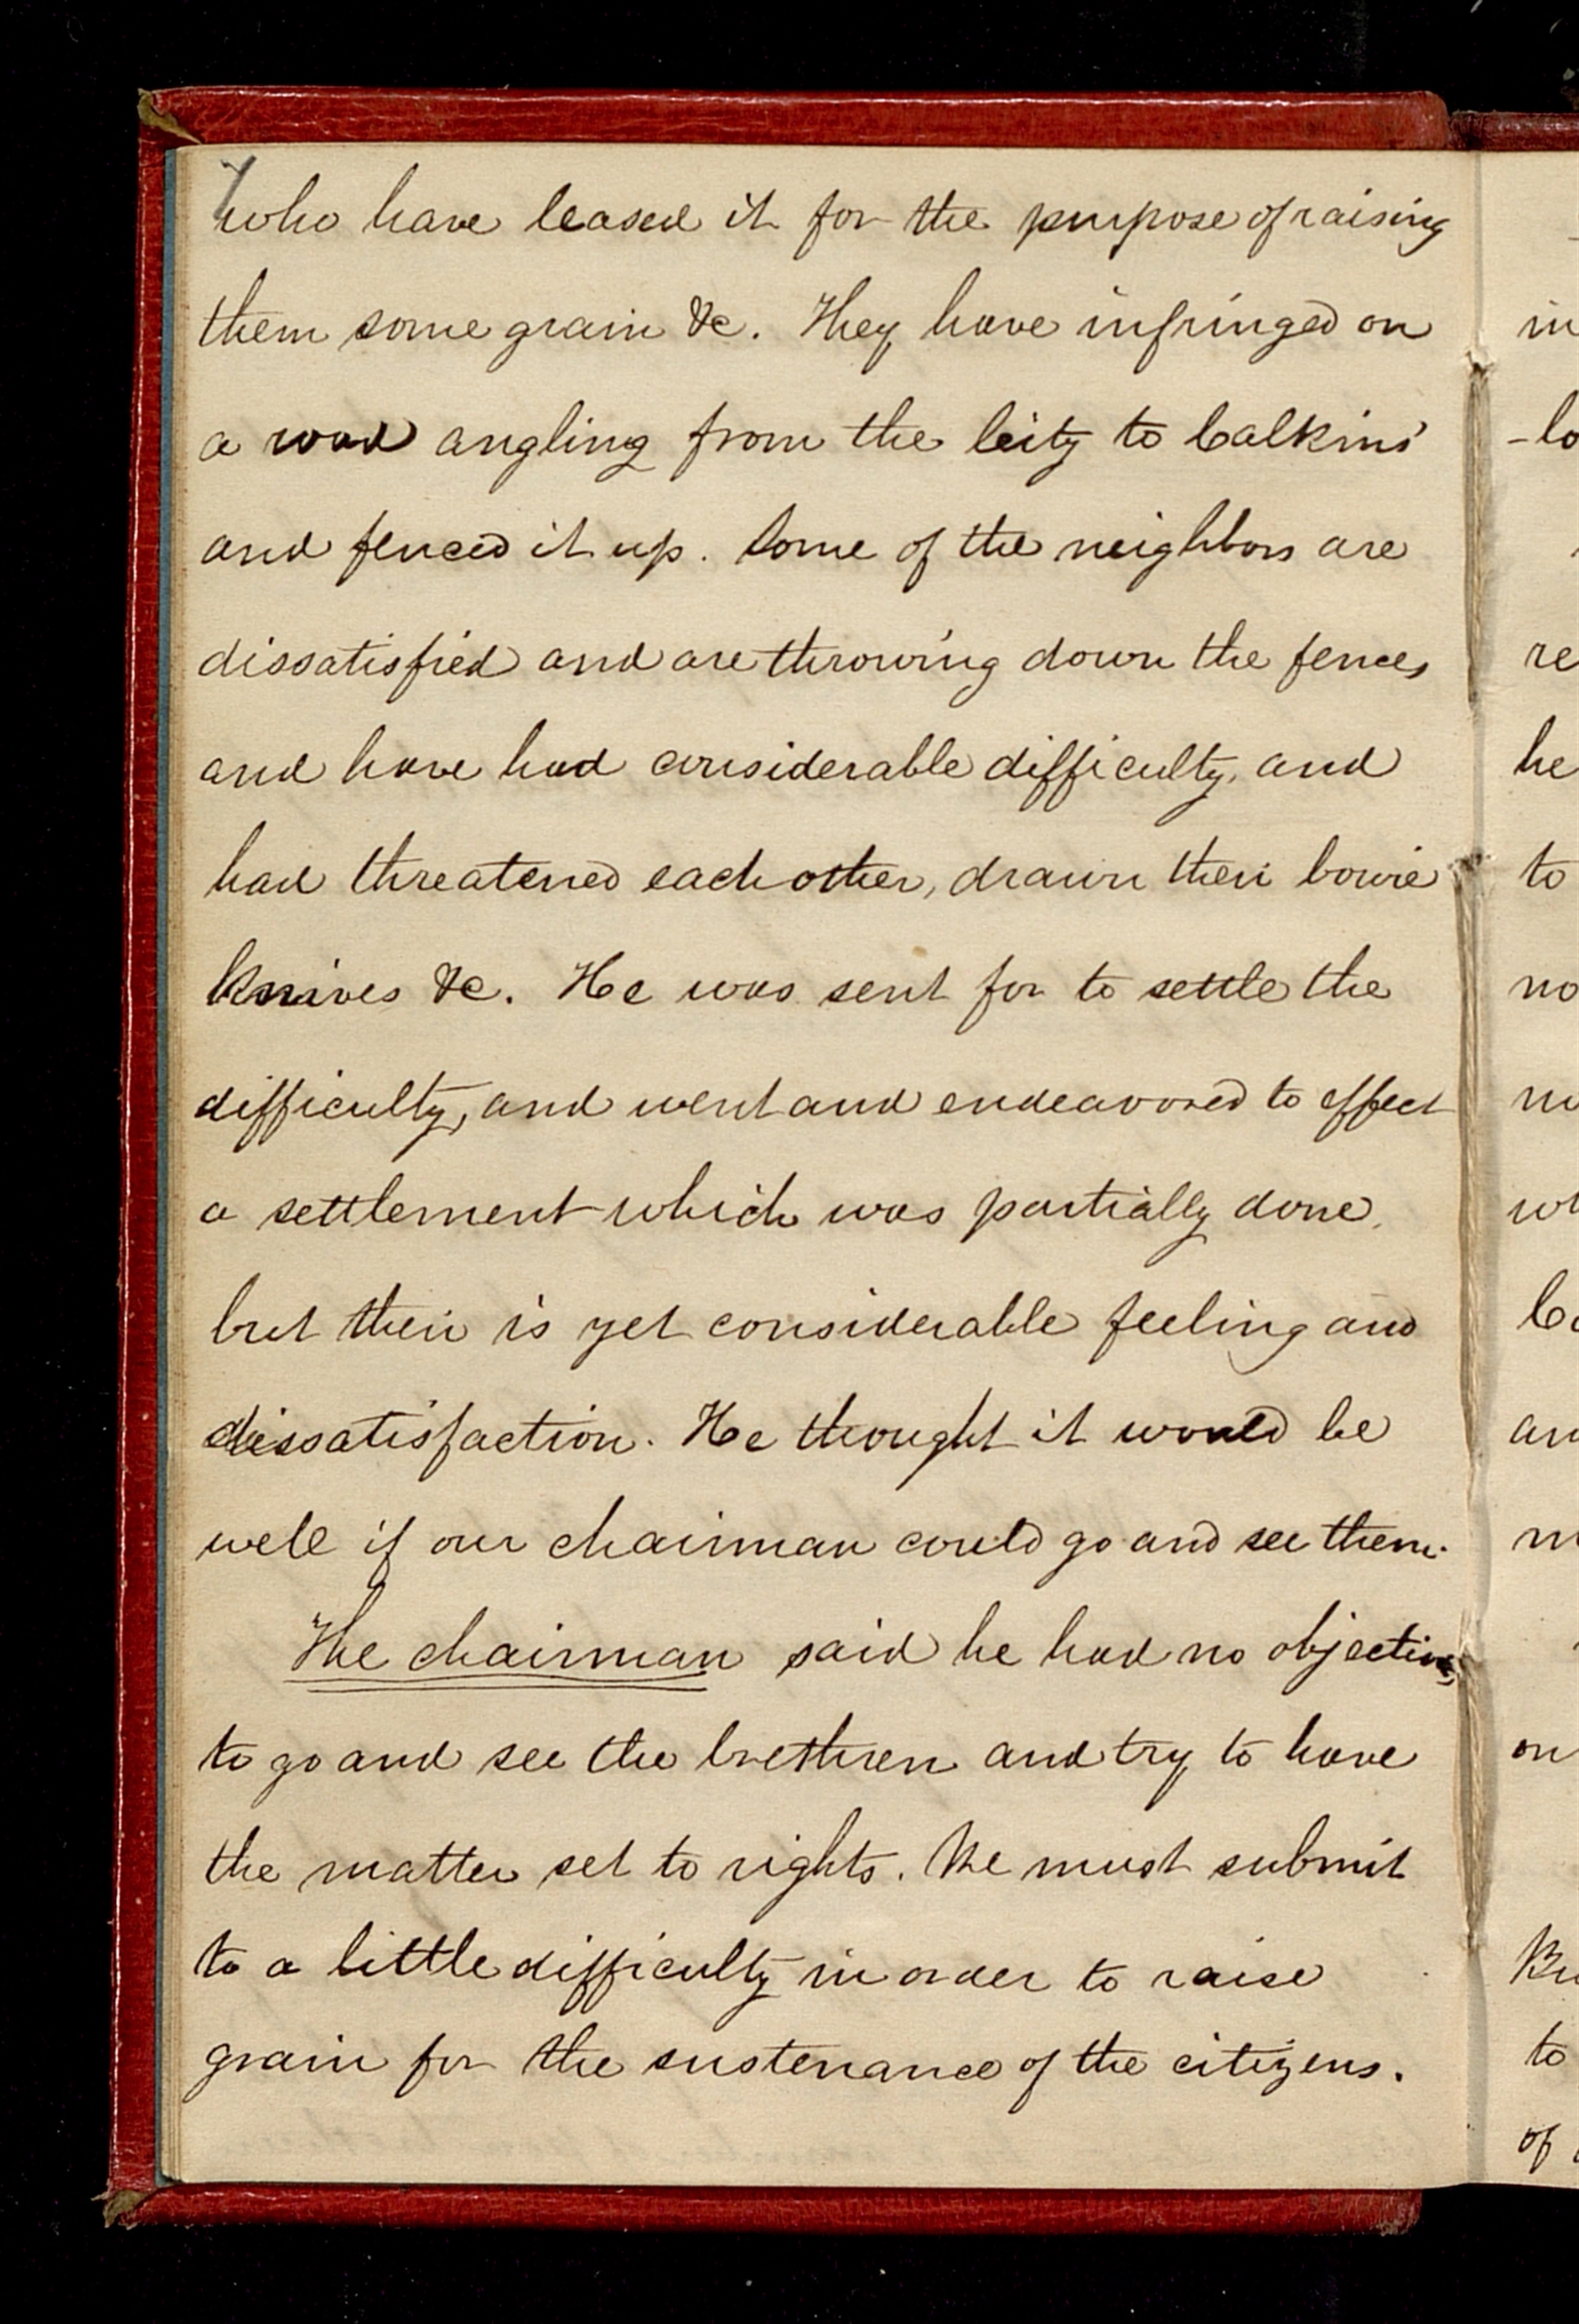 who have leased it for the purpose of raising
them some grain &c. They have infringed on
a road angling from the City to Calkins'
and fenced it up. Some of the neighbors are
dissatisfied and are throwing down the fences
and have had considerable difficulty, and
had threatened each other, drawn their bowie
knives &c. He was sent for to settle the
difficulty, and went and endeavored to effect
a settlement which was partially done,
but their is yet considerable feeling and
dissatisfaction. He thought it would be
well if our chairman could go and see them.
The chairman said he had no objections
to go and see the brethren and try to have
the matter set to rights. We must submit
to a little difficulty in order to raise
grain for the sustenance of the citizens.
in
-lo
re
he
to
no
an
on
to
of